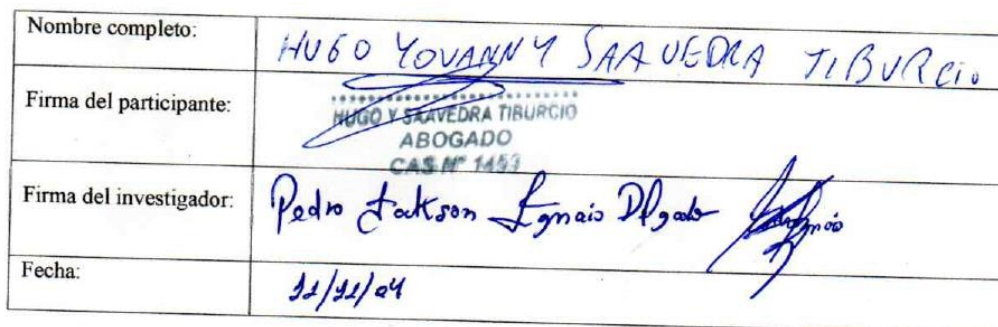 Nombre completo: HUGO YOVANNY SAAVEDRA TIBURCIO
Firma del participante:
HUGO Y SAAVEDRA TIBURCIO
ABOGADO
CAS Nº 1453
Firma del investigador: Pedro Jackson
Fecha: 11/11/24